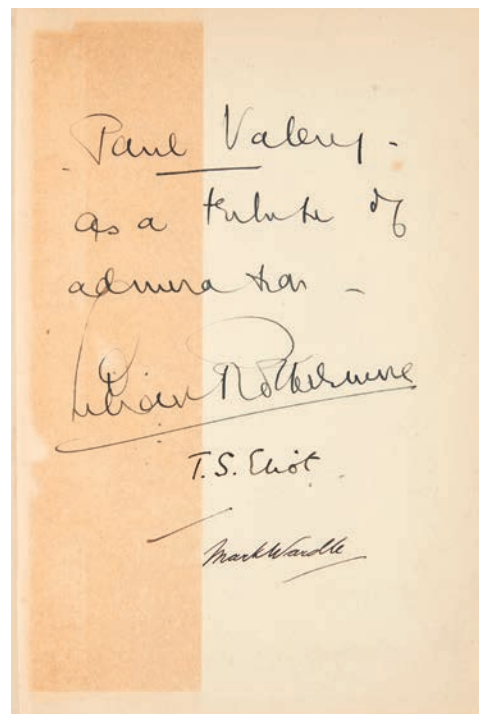 Paul Valery -
as a tribute of
admiration -
Lilian Rothermere
T.S. Eliot
Mark Wardle